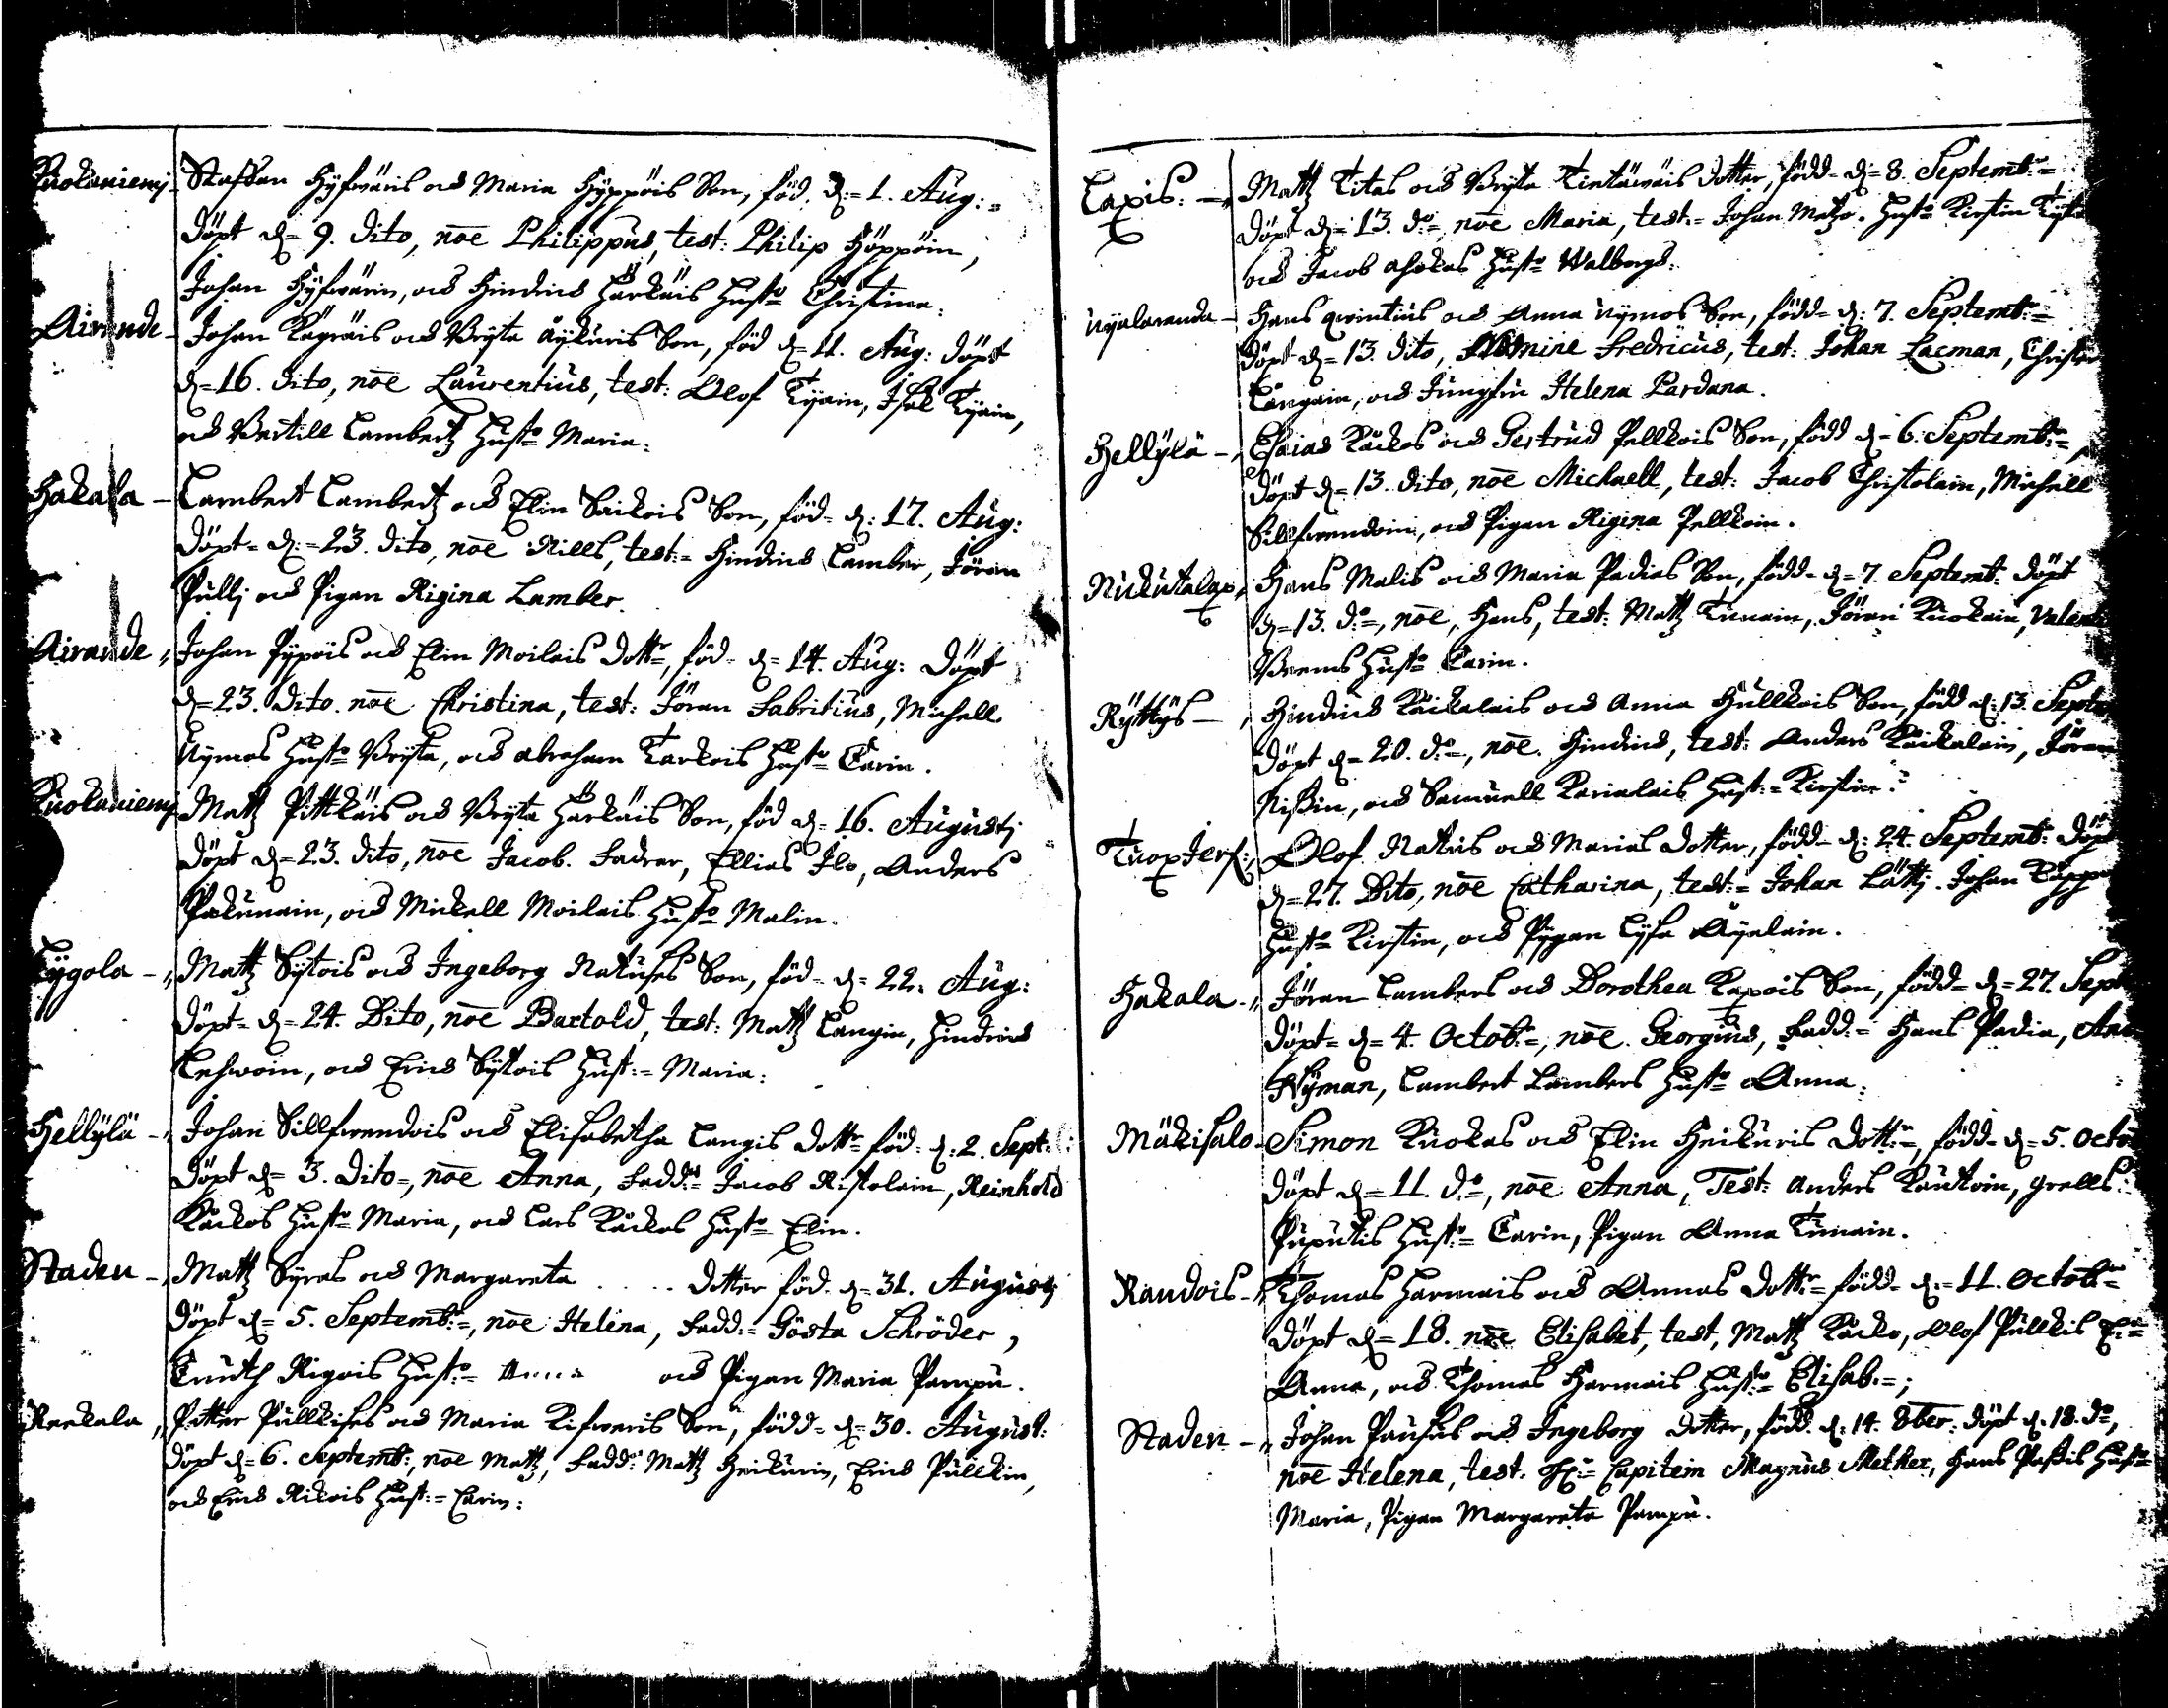 Kuokaniemj- Staffan Hyfwäris och Maria Hyppöis Son, föd. d:=1. Aug:=
Döpt d=9. Dito, noe Philippus, test: Philip Höppöin,
Johan Hyfwärin, och Hindrich Harkäis Husto Christina.
Airande- Johan Kägräis och Bryta Äykäris Son, föd d=11. Aug: Döpt
d=16. Dito, noe Laurentius, test: Olof Tyain, Isak Tyain,
och Bertill Lambertz Husto Maria:
Hakala- Lambert Lambertz och Elin Saikois Son, föd= d:17. Aug:
Döpt= d:=23. Dito, noe Nills, test:= Hindrich Lamber, Jöran
Pullj och Pigan Rigina Lamber.
Airande, Johan Pypöis och Elin Moilais Dottr, föd= d=14. Aug: Döpt
d=23. Dito. noe Christina, test: Jöran Fabritius, Michell
Nymas Husto Bryta, och abraham Karkois Husto Carin.
Kuokaniemj Matz Pittkäis och Bryta Harkäis Son, föd d=16. Augustj
Döpt d=23. Dito, noe Jacob. Fadrar, Ellias Ilo, Anders
Pakunain, och Mickell Moilais Husto Malin.
Kygola-, Mattz Sytöis och Ingeborg Nakuses Son, föd= d=22. Aug:
Döpt= d=24. Dito, noe Bartold, test: Mattz Langin, Hindrich
Lehwoin, och Erich Sytöis Hust:= Maria:
Hellylä-, Johan Sillfwendois och Elisabetha Langis Dottr föd= d:2. Sept:
Döpt d=3. Dito=, noe Anna, Fadd:= Jacob Ristolain, Reinhold
Käckös Husto Maria, och Lars Käckös Husto Elin.
Staden-, Mattz Syräs och Margareta . . . . Dotter föd. d=31. Augustj
Döpt d=5. Septemb:=, noe Helena, Fadd:= Gösta Schröder,
Knuth Rigois Hust:= Anna och Pigan Maria Pampu.
Reekala, Petter Pullkises och Maria Kifwenis Son, född= d=30. August:
Döpt d=6. Septemb:, noe Mattz, Fadd: Mattz Heikurin, Erich Pullkin,
och Erich Rikois Hust:= Carin:
Laxis:-, Mattz Titas och Bryta Tintäwäis Dotter, född= d=8. Septemb:=
Döpt d=13. do=, noe Maria, test:= Johan Husto Kirstin
och Jacob Ahokas Husto Walborgs:
Nyalaranda- Hans qvintius och Anna Nymos Son, född= d:7. Septemb:=
Döpt d=13. Dito, Nomine Fredricus, test: Johan Lacman,
Längain, och Jungfru Helena Pardana.
Hellylä-, Esaias Käckös och Gertrud Pellkois Son, född d=6. Septemb:=,
Döpt d=13. Dito, noe Michaell, test: Jacob Christolain, Michell
Sillfwendoin, och Pigan Rigina Pellkoin.
Nukutalax, Hans Malis och Maria Padias Son, född= d=7. Septemb: Döpt
d=13. do=, noe, Hans, test: Mattz Tunain, Jöran Kuokain,
Brems Husto Carin.
Ryttys-, Hindrich Käikalais och Anna Hullkois Son, född d:13.
Döpt d=20. do=, noe. Hindrich, test: Anders Käikalain, Jöran
Nissin, och Samuell Karialais Hust:= Kirstin:
Tuoxjerf:, Olof Nakus och Marias Dotter, född= d:24. Septemb: Döpt
d=27. Dito, noe Catharina, test:= Johan Lättj. Johan
Husto Kirstin, och Pygan Lysa Äyalain.
Hakala-, Jöran Lambers och Dorothea Kapois Son, född= d=27. Sept
Döpt= d=4. Octob:=, noe. Georgius, Fadd:= Hans Padia,
Nyman, Lambert Lambers Husto Anna:
Mäkisalo- Simon Kuokas och Elin Heikuris Dottr=, född= d=5. Octob
Döpt d=11. do=, noe Anna, Test: Anders Kautoin, grells:
Puputis Husto= Carin, Pigan Anna Tunain.
Raudois-, Thomas Harmais och Annas Dottr= född= d:=11. Octob:=
Döpt d=18. noe Elisabet, test, Mattz Käckö, Olof Pullkis
Anna, och Thomas Harmais Husto= Elisab:=;
Staden-, Johan Pausus och Ingeborg Dotter, född. d:14. 8ber: Döpt d:18. do,
noe Helena, test: Hr:= Capitein Magnus Mether, Hans Passis Husto
Maria, Pigan Margareta Pampu.